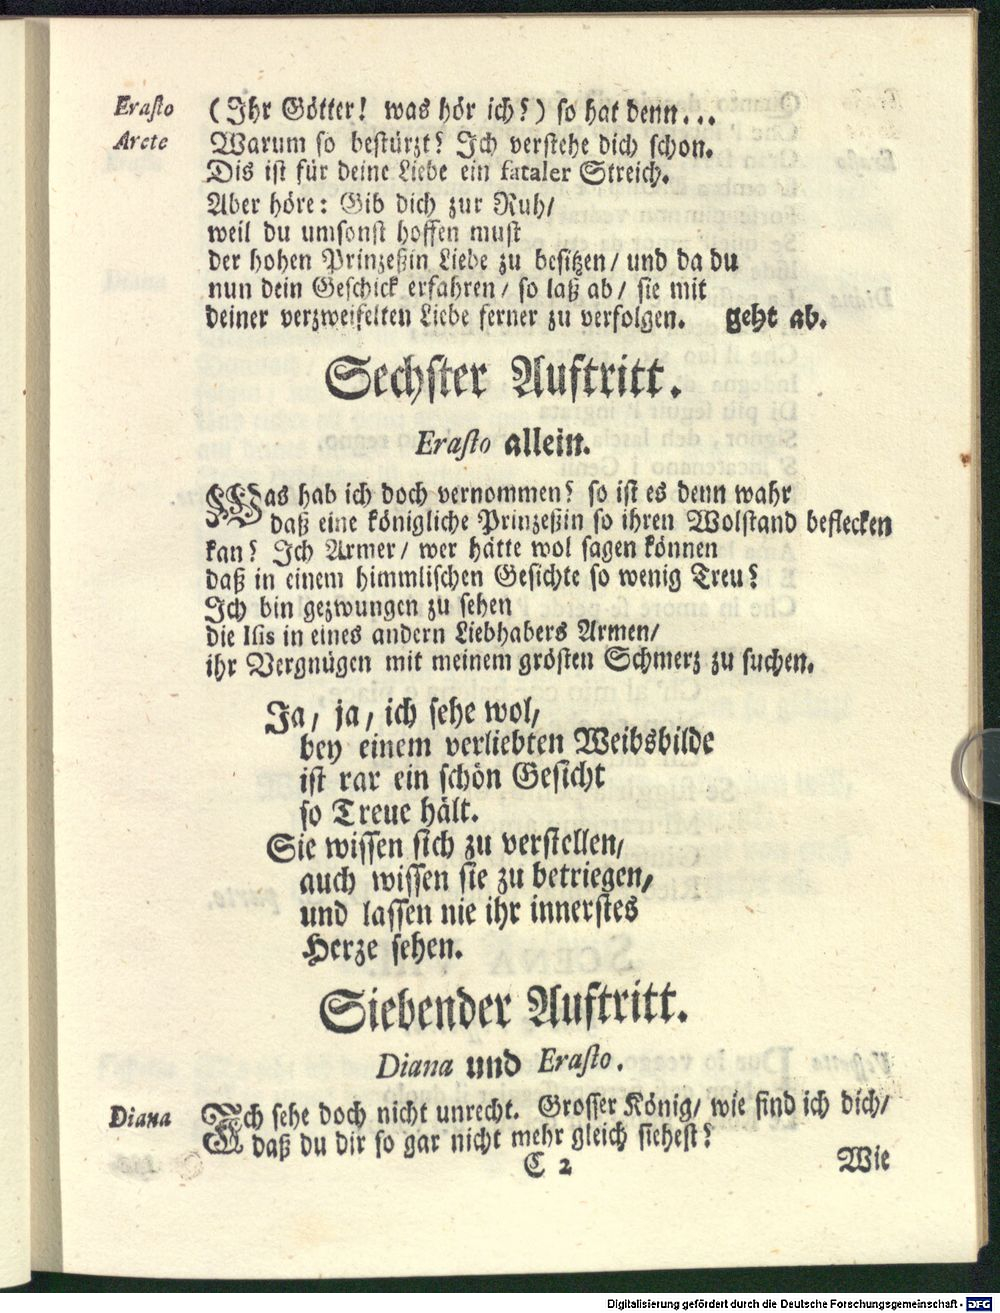 Erasto (Ihr Götter! was hör ich?) so hat denn...
Arete Warum so bestürzt? Ich verstehe dich schon.
Dis ist für deine Liebe ein fataler Streich.
Aber höre: Gib dich zur Ruh/
weil du umsonst hoffen must
der hohen Prinzeßin Liebe zu besitzen/ und da du
nun dein Geschick erfahren/ so laß ab/ sie mit
deiner verzweifelten Liebe ferner zu verfolgen. geht ab.
Sechster Auftritt.
Erasto allein.
Was hab ich doch vernommen? so ist es denn wahr
daß eine königliche Prinzeßin so ihren Wolstand beflecken
kan? Ich Armer/ wer hätte wol sagen können
daß in einem himmlischen Gesichte so wenig Treu?
Ich bin gezwungen zu sehen
die Isis in eines andern Liebhabers Armen/
ihr Vergnügen mit meinem grösten Schmerz zu suchen.
Ja/ ja/ ich sehe wol/
bey einem verliebten Weibsbilde
ist rar ein schön Gesicht
so Treue hält.
Sie wissen sich zu verstellen/
auch wissen sie zu betriegen/
und lassen nie ihr innerstes
Herze sehen.
Siebender Auftritt.
Diana und Erasto.
Diana Ich sehe doch nicht unrecht. Grosser König/ wie find ich dich/
daß du dir so gar nicht mehr gleich siehest?
C 2 Wie
Digitalisierung gefördert durch die Deutsche Forschungsgemeinschaft - DFG